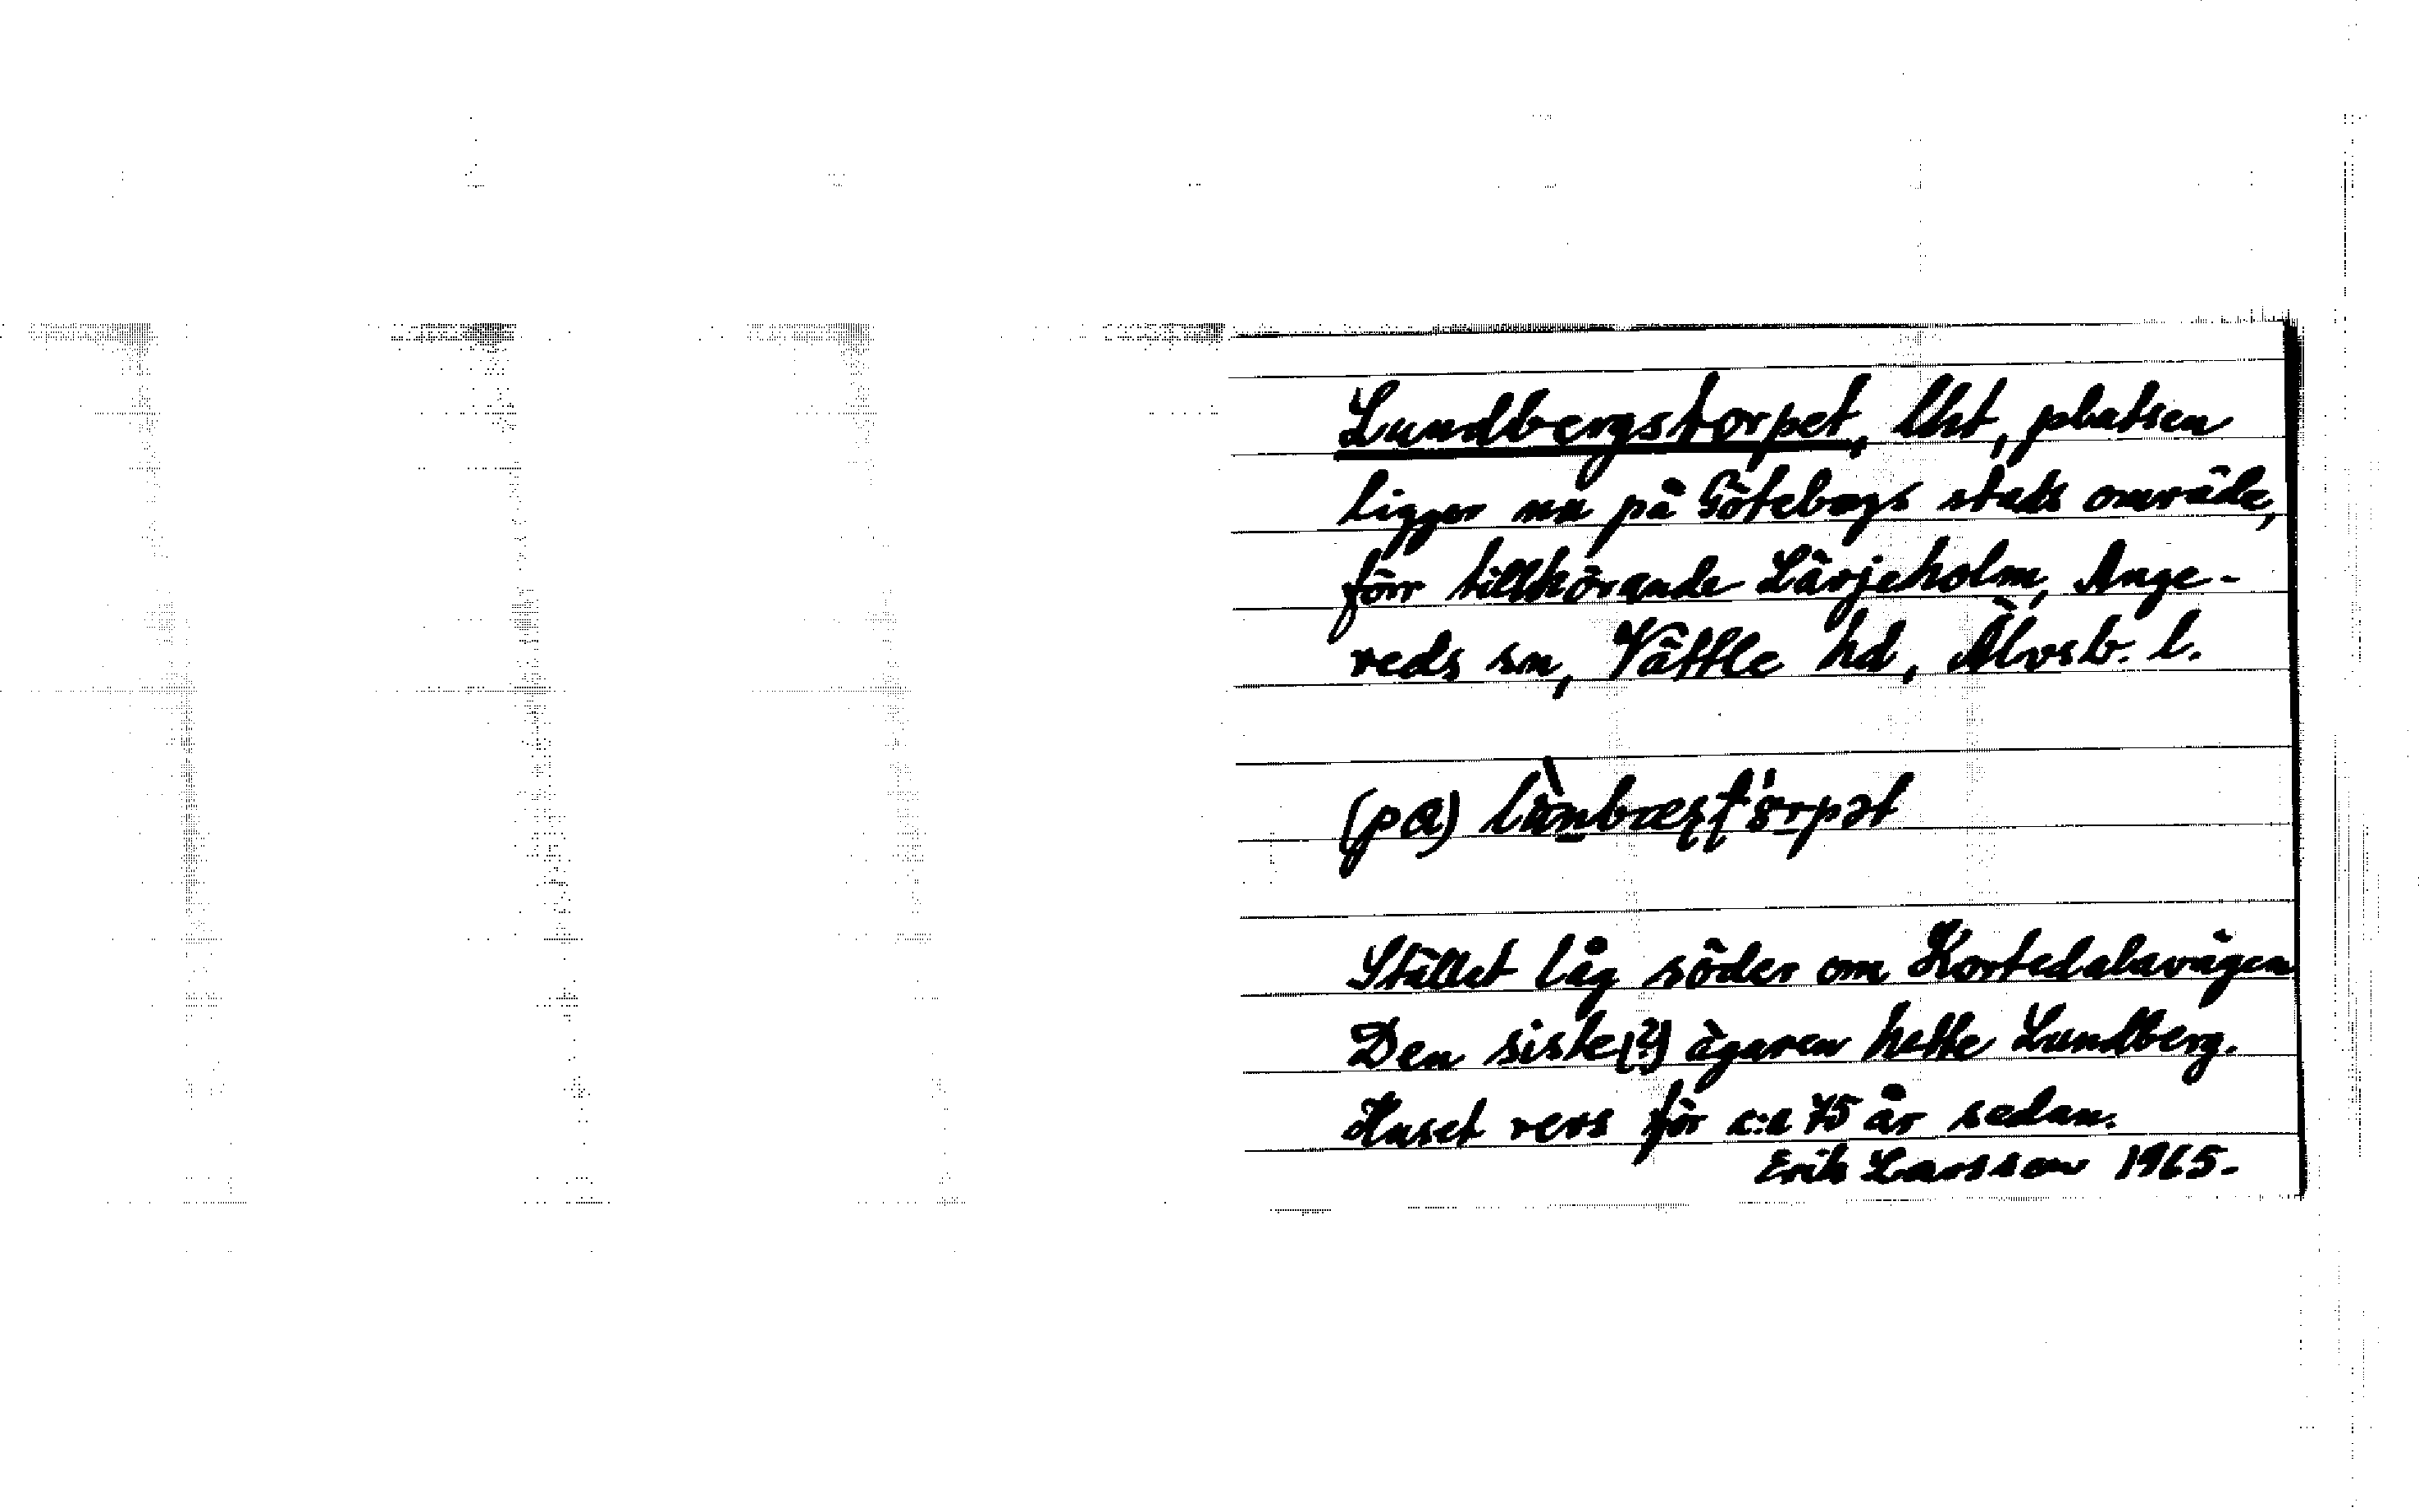 Lundbergstorpet, lht, platsen
ligger nu på Göteborgs stads område,
förr tillhörande Lärjeholm, Ange-
reds sn, Vättle hd, Älvsb. l.
(pɑ)
Stället låg söder om Kortedalavägen
Den siste(?) ägaren hette Lundberg.
Huset revs för c:a 75 år sedan.
Erik Larsson 1965.